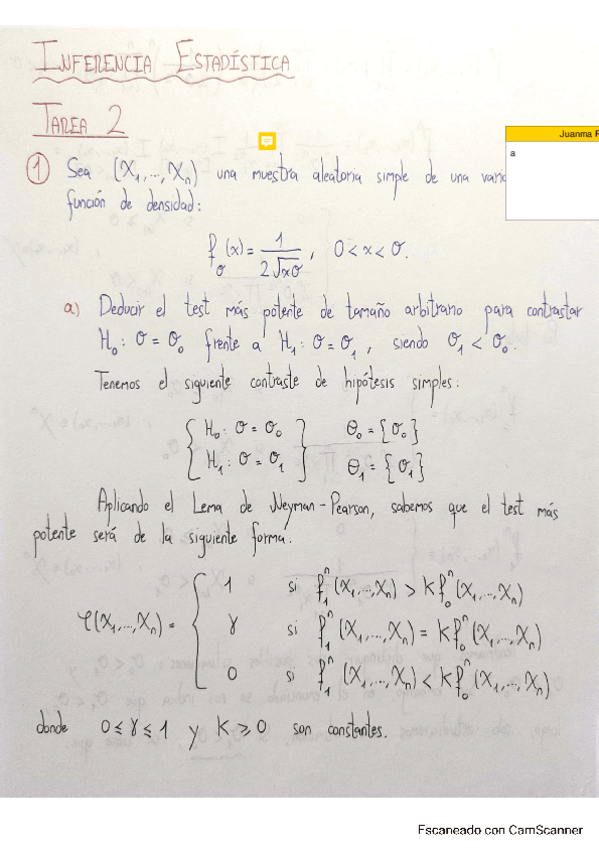 INFERENCIA ESTADÍSTICA
TAREA 2
Juanma P
a
① Sea (X₁,...,Xₙ) una muestra aleatoria simple de una
función de densidad:
f_σ(x) = 1/(2√(xσ)), 0 < x < σ.
a) Deducir el test más potente de tamaño arbitrario para contrastar
H₀: σ = σ₀ frente a H₁: σ = σ₁, siendo σ₁ < σ₀.
Tenemos el siguiente contraste de hipótesis simples:
{ H₀: σ = σ₀ } Θ₀ = {σ₀}
{ H₁: σ = σ₁ } Θ₁ = {σ₁}
Aplicando el Lema de Neyman-Pearson, sabemos que el test más
potente será de la siguiente forma:
1 si f₁ⁿ(X₁,...,Xₙ) > K f₀ⁿ(X₁,...,Xₙ)
φ(X₁,...,Xₙ) = { γ si f₁ⁿ(X₁,...,Xₙ) = K f₀ⁿ(X₁,...,Xₙ)
0 si f₁ⁿ(X₁,...,Xₙ) < K f₀ⁿ(X₁,...,Xₙ)
donde 0 ≤ γ ≤ 1 y K ≥ 0 son constantes.
Escaneado con CamScanner